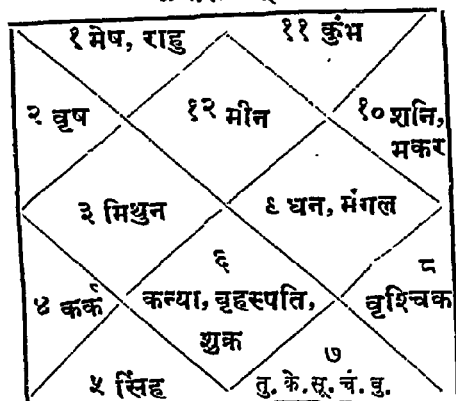 १ मेष, राहु
११ कुंभ
२ वृष
१२ मीन
१० शनि,
मकर
३ मिथुन
९ धन, मंगल
४ कर्क
६
कन्या, बृहस्पति,
शुक्र
८
वृश्चिक
५ सिंह
७
तु. के. सू. चं. बु.